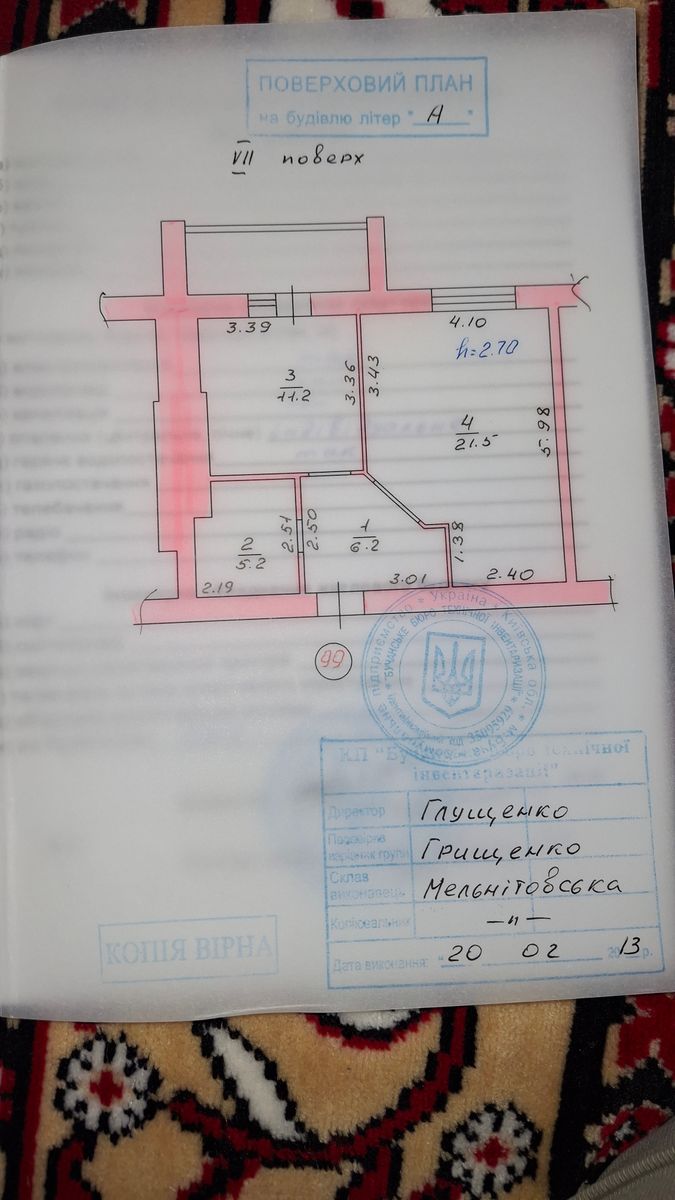 ПОВЕРХОВИЙ ПЛАН
на будівлю літер " А "
VII поверх
3.39
4.10
h=2.70
3
11.2
3.36
3.43
4
21.5
5.98
2
5.2
2.51
2.50
1
6.2
1.38
2.19
3.01
2.40
99
підприємство * Україна * Київська обл. * м. Буча
"БУЧАНСЬКЕ БЮРО ТЕХНІЧНОЇ ІНВЕНТАРИЗАЦІЇ"
КП "Бу технічної
інвентаризації"
Директор Глущенко
Перевірив
керівник групи Грищенко
Склав
виконавець Мельнітовська
Копіювальник —"—
Дата виконання: "20 02 2013р.
КОПІЯ ВІРНА